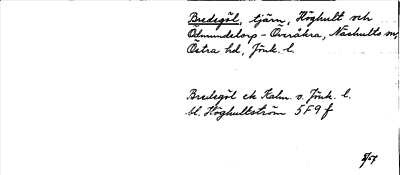 Bredegöl, tjärn, Höghult och
Ödmundetorp - Övråkra, Näshults sn,
Östra hd, Jönk. l.
Bredegöl ek Kalm. o. Jönk. l.
bl. Höghultström 5F9f